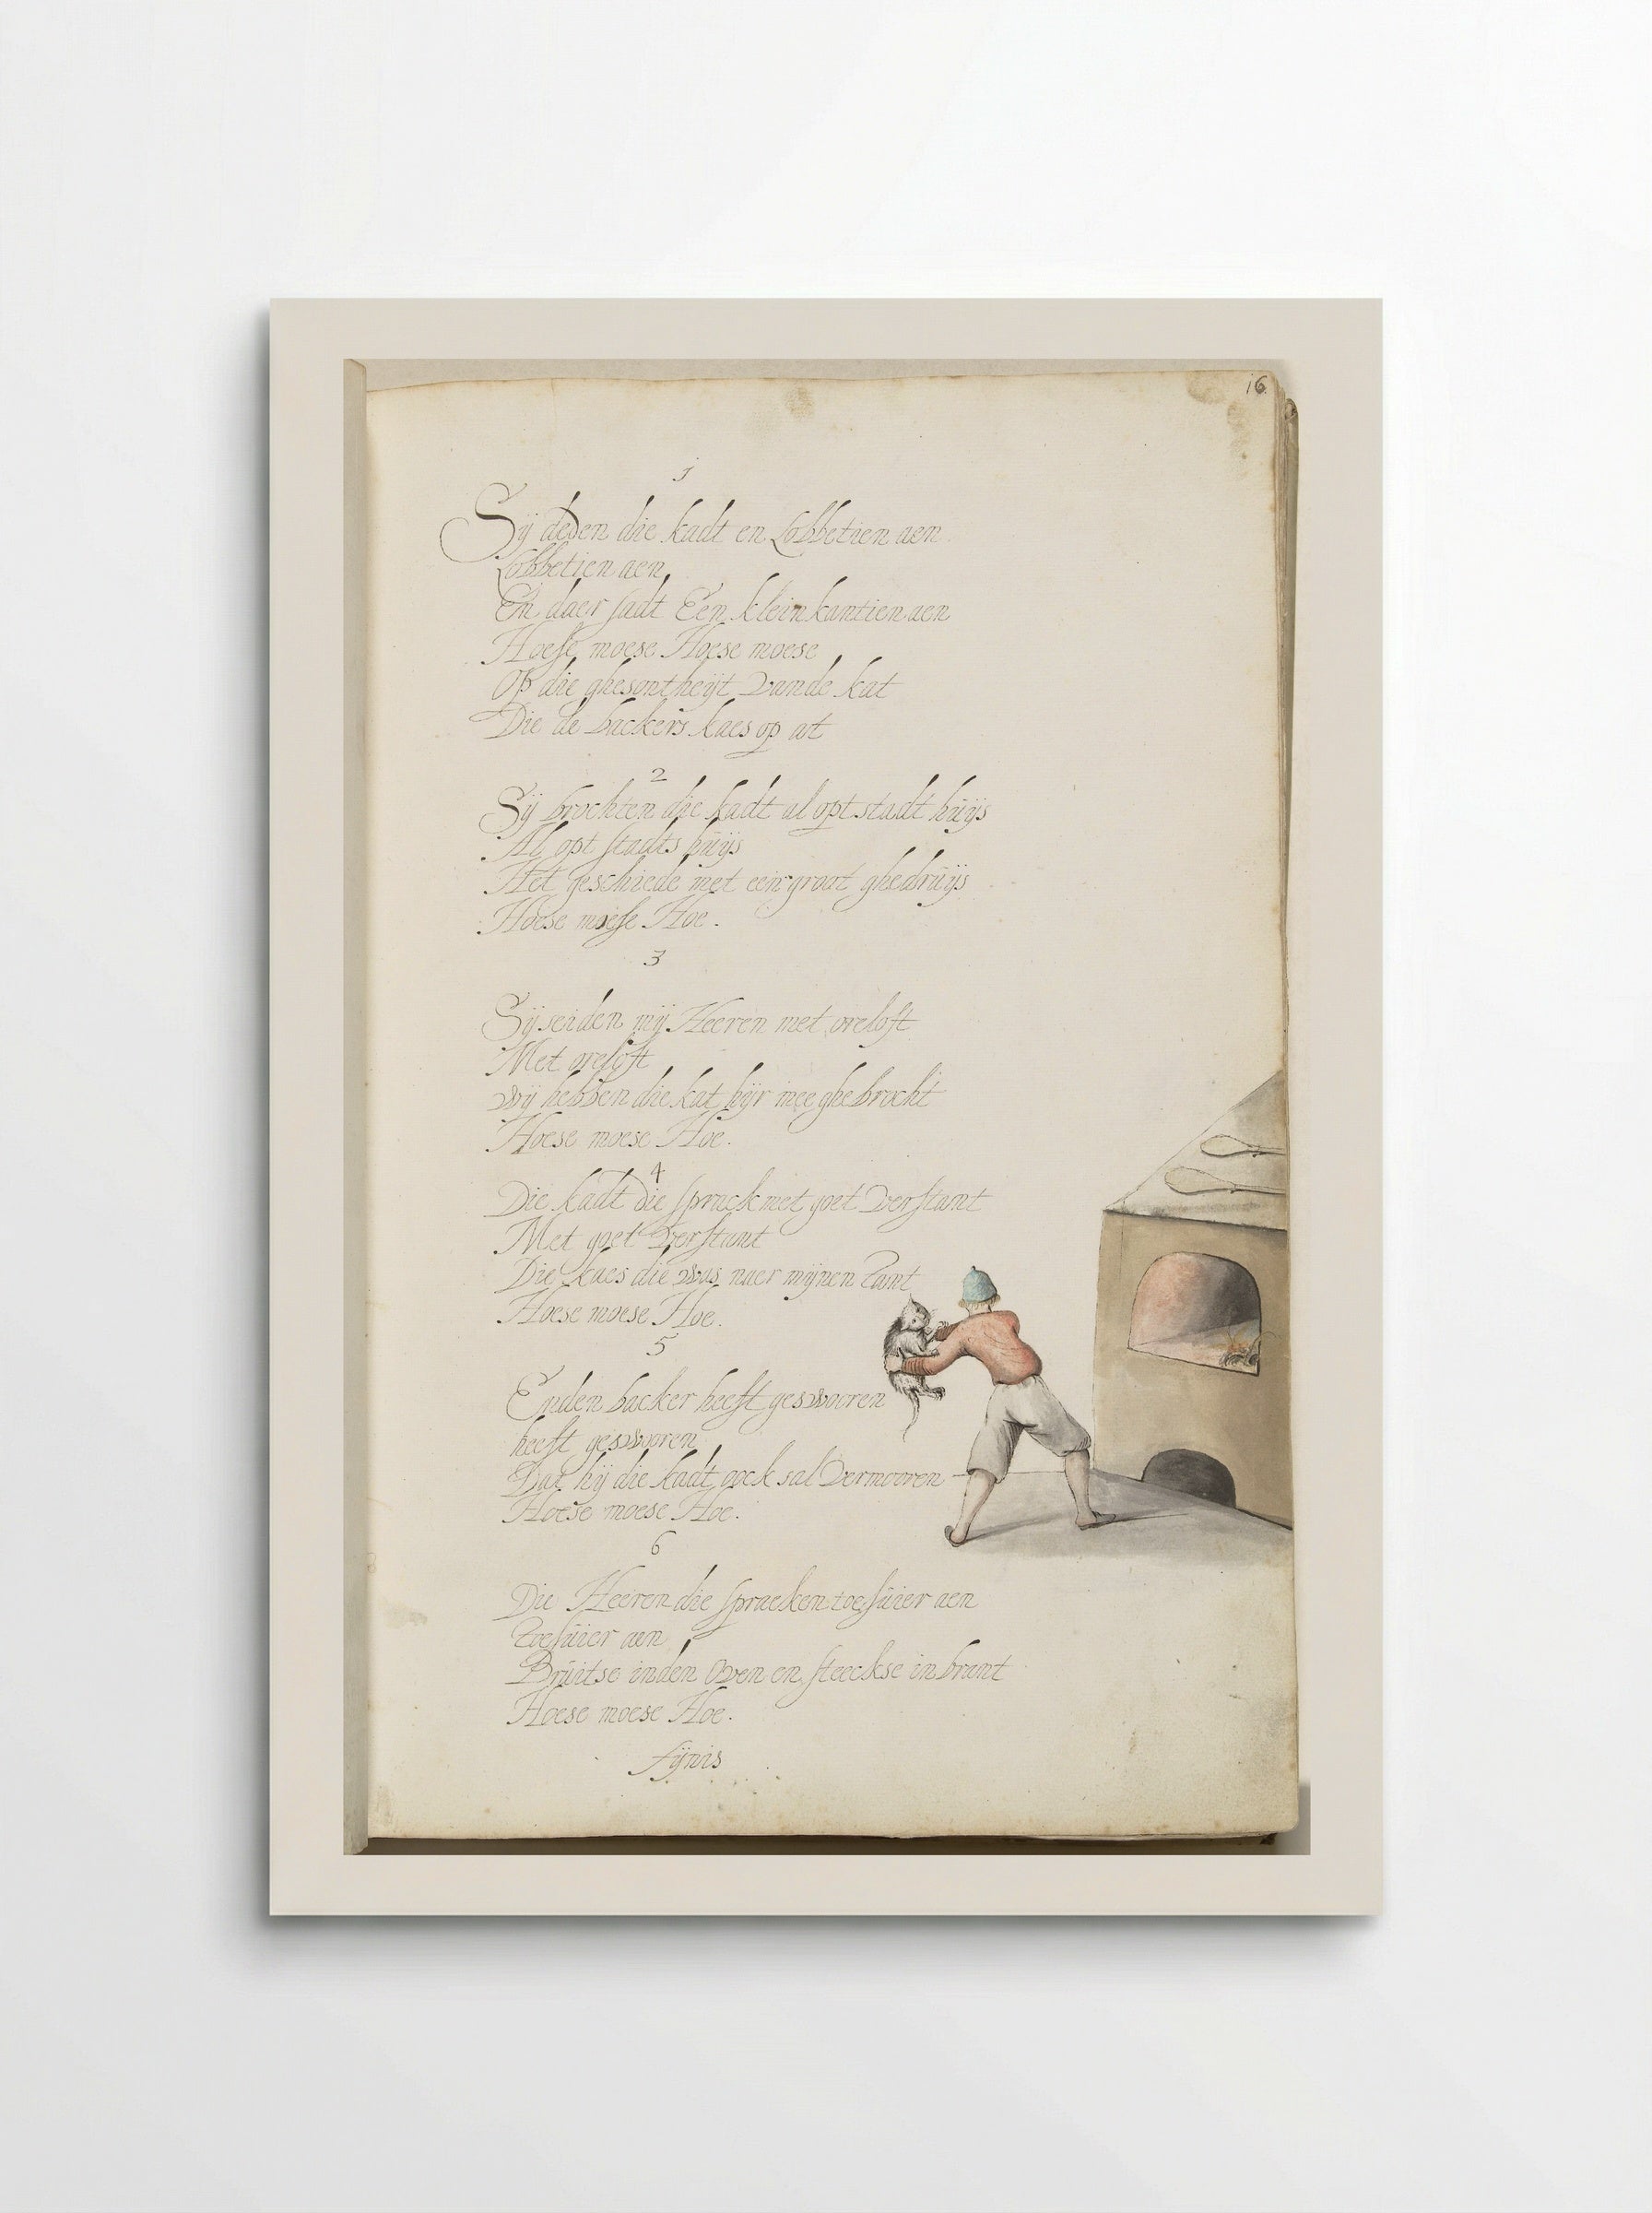 16
1
Sij deden die kadt en Lobbetien aen
Lobbetien aen
En daer sadt Een klein kantien aen
Hoese moese Hoese moese
Op die ghesontheijt vande kat
Die de backers kaes op at
2
Sij brochten die kadt al opt stadt huijs
Al opt stadts huijs
Het geschiede met een groot ghedruijs
Hoese moese Hoe.
3
Sij seiden mij Heeren met oreloft
Met oreloft
wij hebben die kat hijr mee ghebrocht
Hoese moese Hoe.
4
Die kadt die sprack met goet verstant
Met goet verstant
Die kaes die was naer mijnen tant
Hoese moese Hoe.
5
Enden backer heeft geswooren
heeft geswooren
Dat hij die kadt oock sal vermooren
Hoese moese Hoe.
6
Die Heeren die spraeken toe suier aen
toe suier aen
Bruitse inden oven en steeckse in brant
Hoese moese Hoe.
fijnis